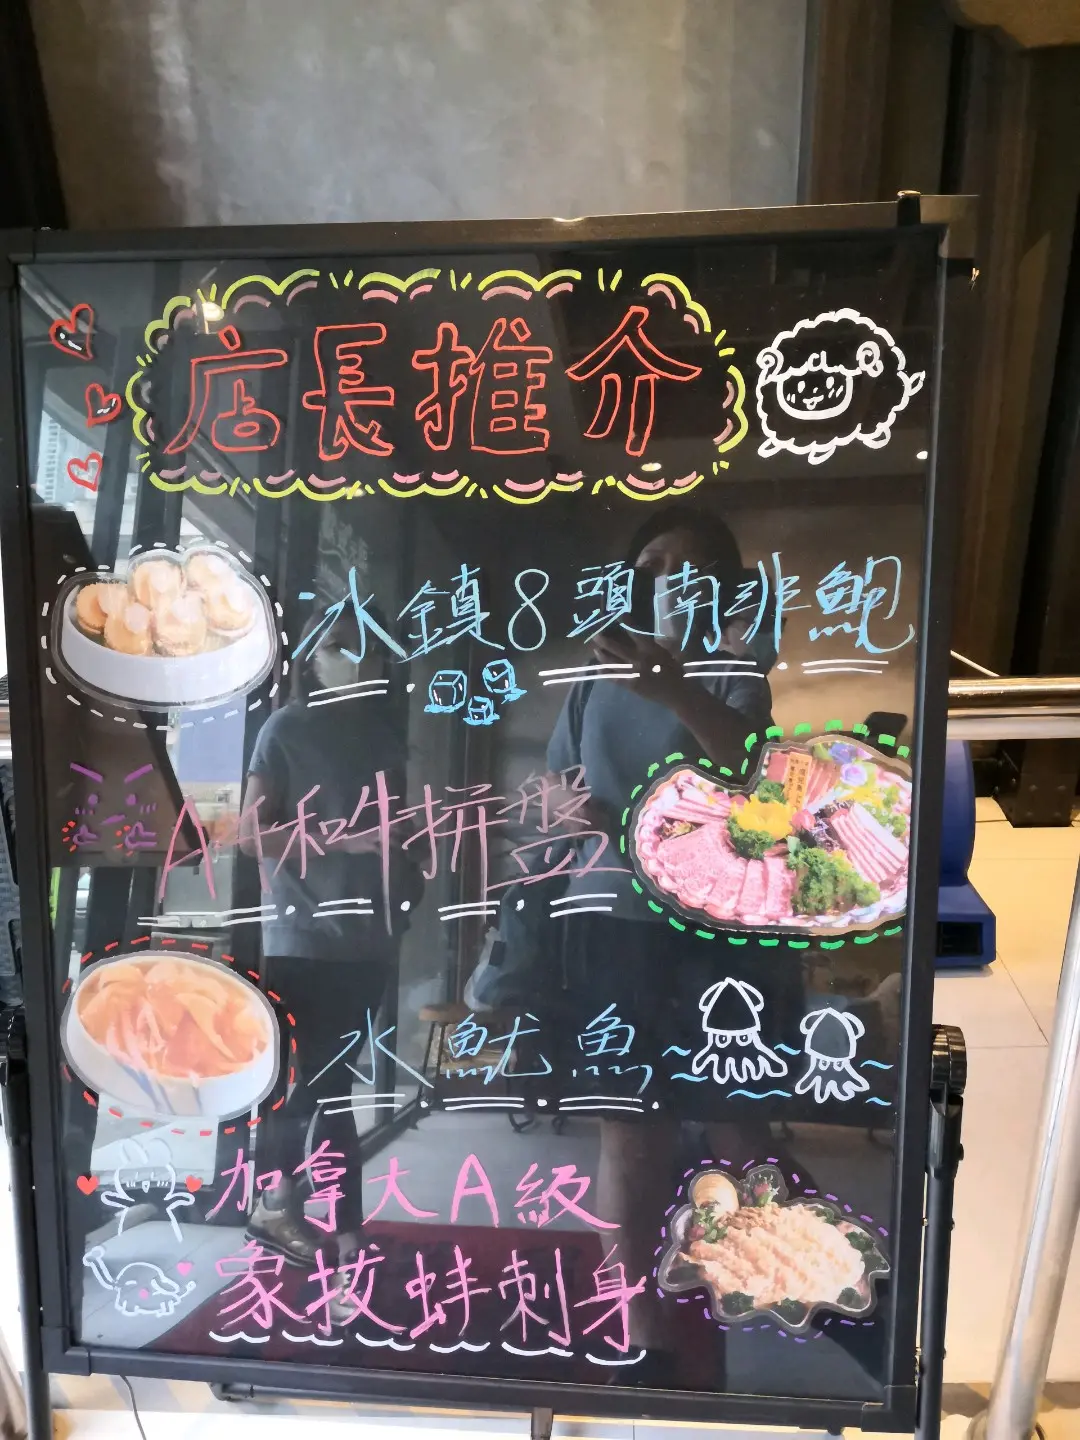 店長推介
冰鎮8頭南非鮑
A4和牛拼盤
水魷魚
加拿大A級
象拔蚌刺身